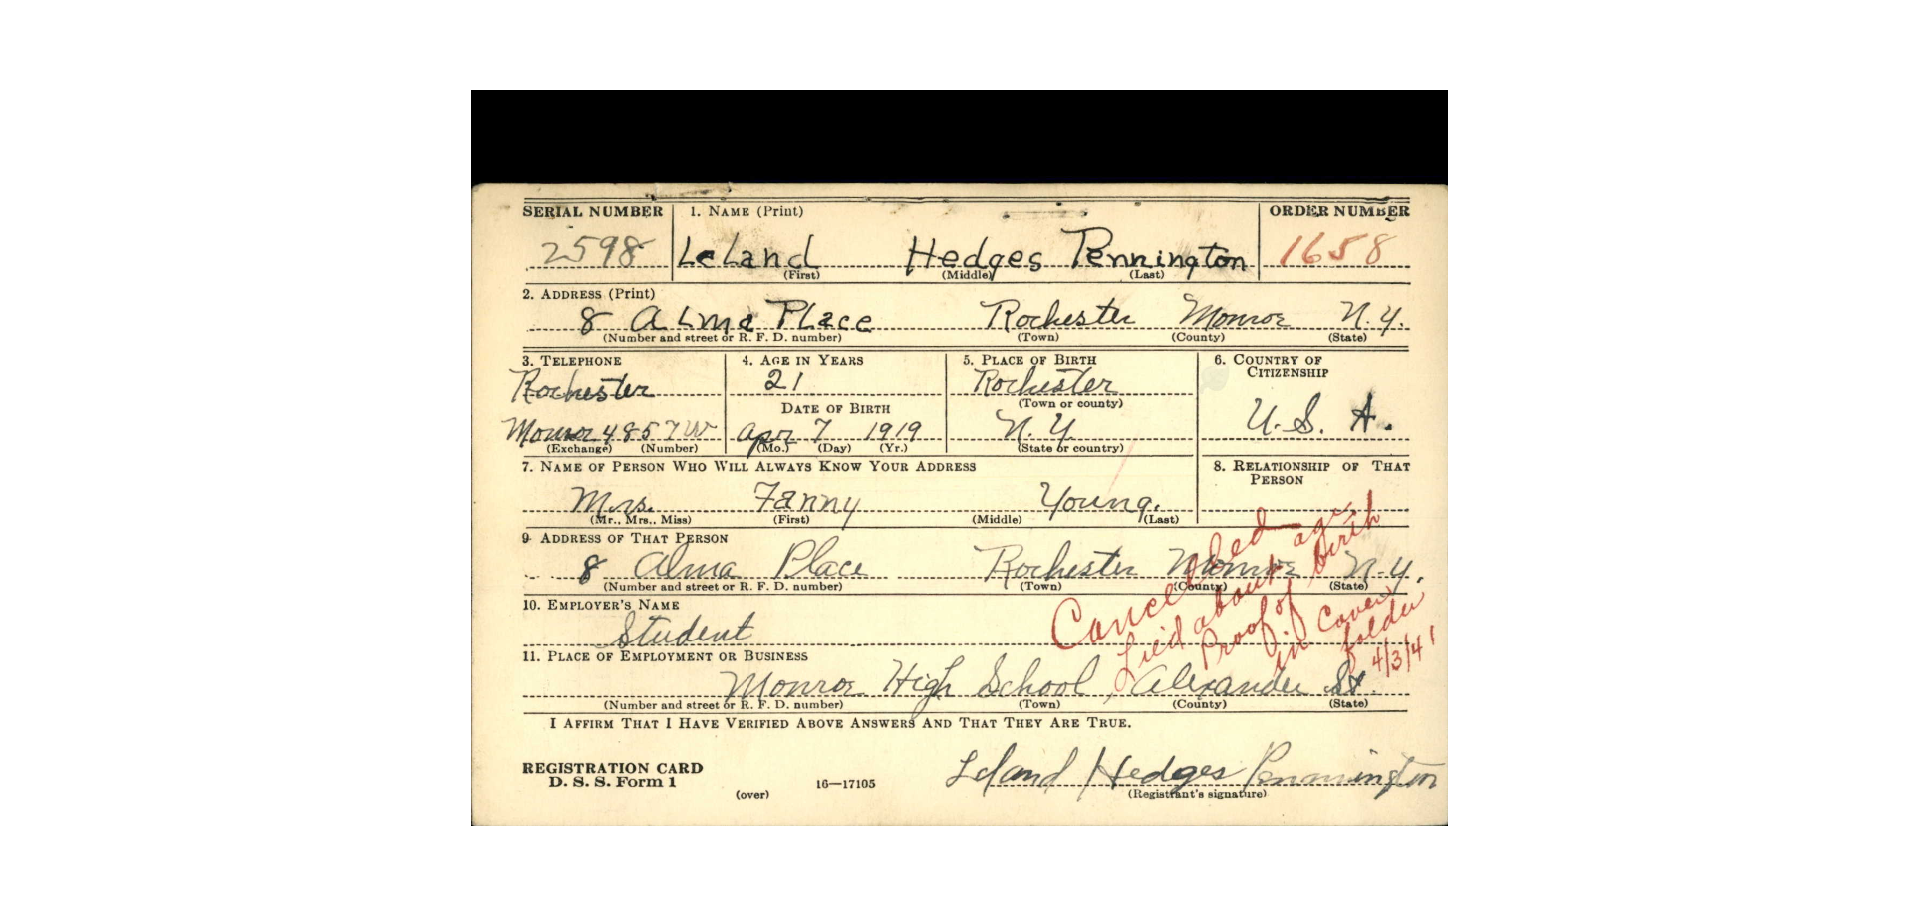 SERIAL NUMBER 1. NAME (Print) ORDER NUMBER
2598 Leland Hedges Pennington 1658
(First) (Middle) (Last)
2. ADDRESS (Print)
8 Alma Place Rochester Monroe N.Y.
(Number and street or R. F. D. number) (Town) (County) (State)
3. TELEPHONE 4. AGE IN YEARS 5. PLACE OF BIRTH 6. COUNTRY OF CITIZENSHIP
Rochester 21 Rochester
DATE OF BIRTH (Town or county) U.S.A.
Monroe 4857W Apr 7 1919 N.Y.
(Exchange) (Number) (Mo.) (Day) (Yr.) (State or country)
7. NAME OF PERSON WHO WILL ALWAYS KNOW YOUR ADDRESS 8. RELATIONSHIP OF THAT PERSON
Mrs. Fanny Young.
(Mr., Mrs., Miss) (First) (Middle) (Last)
9 ADDRESS OF THAT PERSON
8 Alma Place Rochester Monroe N.Y.
(Number and street or R. F. D. number) (Town) (County) (State)
Cancelled
Lied about age
Proof of birth
in cover
folder
4/3/41
10. EMPLOYER'S NAME
Student
11. PLACE OF EMPLOYMENT OR BUSINESS
Monroe High School, Alexander St.
(Number and street or R. F. D. number) (Town) (County) (State)
I AFFIRM THAT I HAVE VERIFIED ABOVE ANSWERS AND THAT THEY ARE TRUE.
Leland Hedges Pennington
REGISTRATION CARD
D. S. S. Form 1 16—17105
(over) (Registrant's signature)